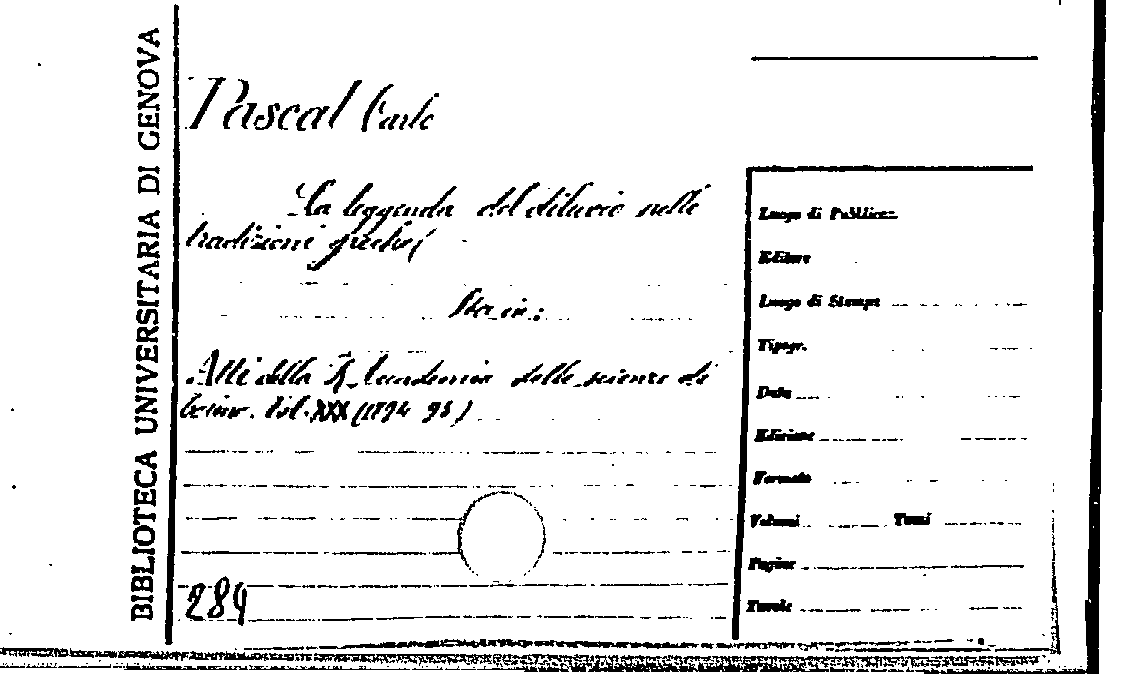 BIBLIOTECA UNIVERSITARIA DI GENOVA
Pascal Carlo
La leggenda del diluvio nelle
tradizioni greche
Sta in:
Atti della R. Accademia delle scienze di
Torino. Vol. XXX (1894 95)
284
Luogo di Pubblicaz.
Editore
Luogo di Stampa
Tipogr.
Data
Edizione
Formato
Volumi Tomi
Pagine
Tavole